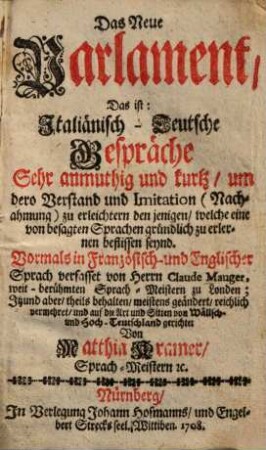 Das Neue
Parlament/
Das ist:
Italiänisch-Deutsche
Gespräche
Sehr anmuthig und kurtz/ um
dero Verstand und Imitation (Nach-
ahmung) zu erleichtern den jenigen/ welche eine
von besagten Sprachen gründlich zu erler-
nen beflissen seynd.
Vormals in Französisch-und Englischer
Sprach verfasset von Herrn Claude Mauger,
weit-berühmten Sprach-Meistern zu Londen;
Itzund aber/ theils behalten/ meistens geändert/ reichlich
vermehret/ und auf die Art und Sitten von Wällsch-
und Hoch-Teutschland gerichtet
Von
Matthia Kramer/
Sprach-Meistern ꝛc.
Nürnberg/
In Verlegung Johann Hofmanns/ und Engel-
bert Strecks seel. Wittiben. 1708.